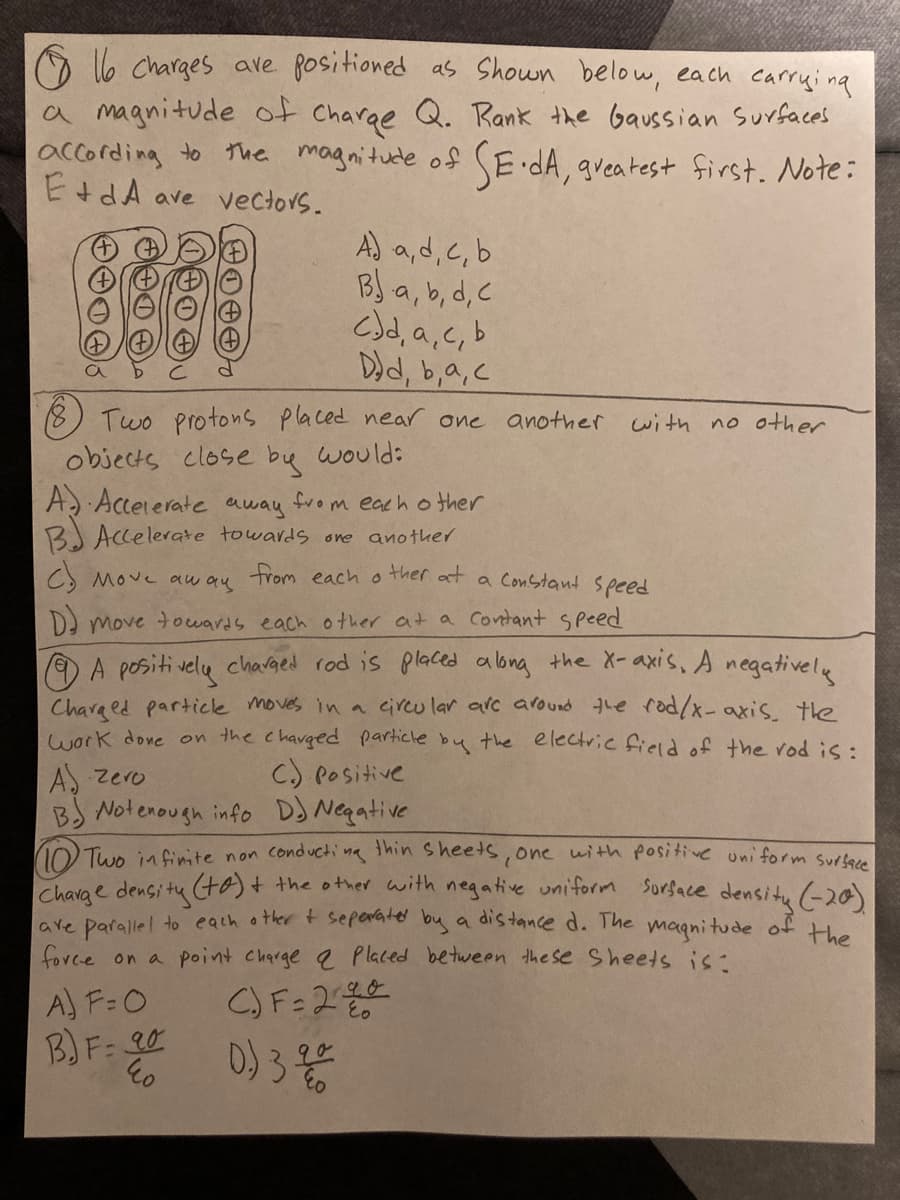 ⑦ 16 charges are positioned as shown below, each carrying
a magnitude of charge Q. Rank the Gaussian Surfaces
according to the magnitude of ∫E·dA, greatest first. Note:
E + dA are vectors.
+ + − +
+ + + −
− − − +
+ + + +
a b c d
A) a,d,c,b
B) a,b,d,c
C) d,a,c,b
D) d,b,a,c
⑧ Two protons placed near one another with no other
objects close by would:
A.) Accelerate away from each other
B.) Accelerate towards one another
C) Move away from each other at a constant speed
D) move towards each other at a contant speed
⑨ A positively charged rod is placed along the x-axis. A negatively
Charged particle moves in a circular arc around the rod/x-axis. the
work done on the charged particle by the electric field of the rod is:
A) zero C.) positive
B.) Not enough info D.) Negative
⑩ Two infinite non conducting thin sheets, one with positive uniform surface
charge density (+σ) + the other with negative uniform surface density (-2σ)
are parallel to each other + seperated by a distance d. The magnitude of the
force on a point charge q placed between these sheets is:
A) F=0 C.) F=2 qσ/ε0
B.) F= qσ/ε0 D.) 3 qσ/ε0